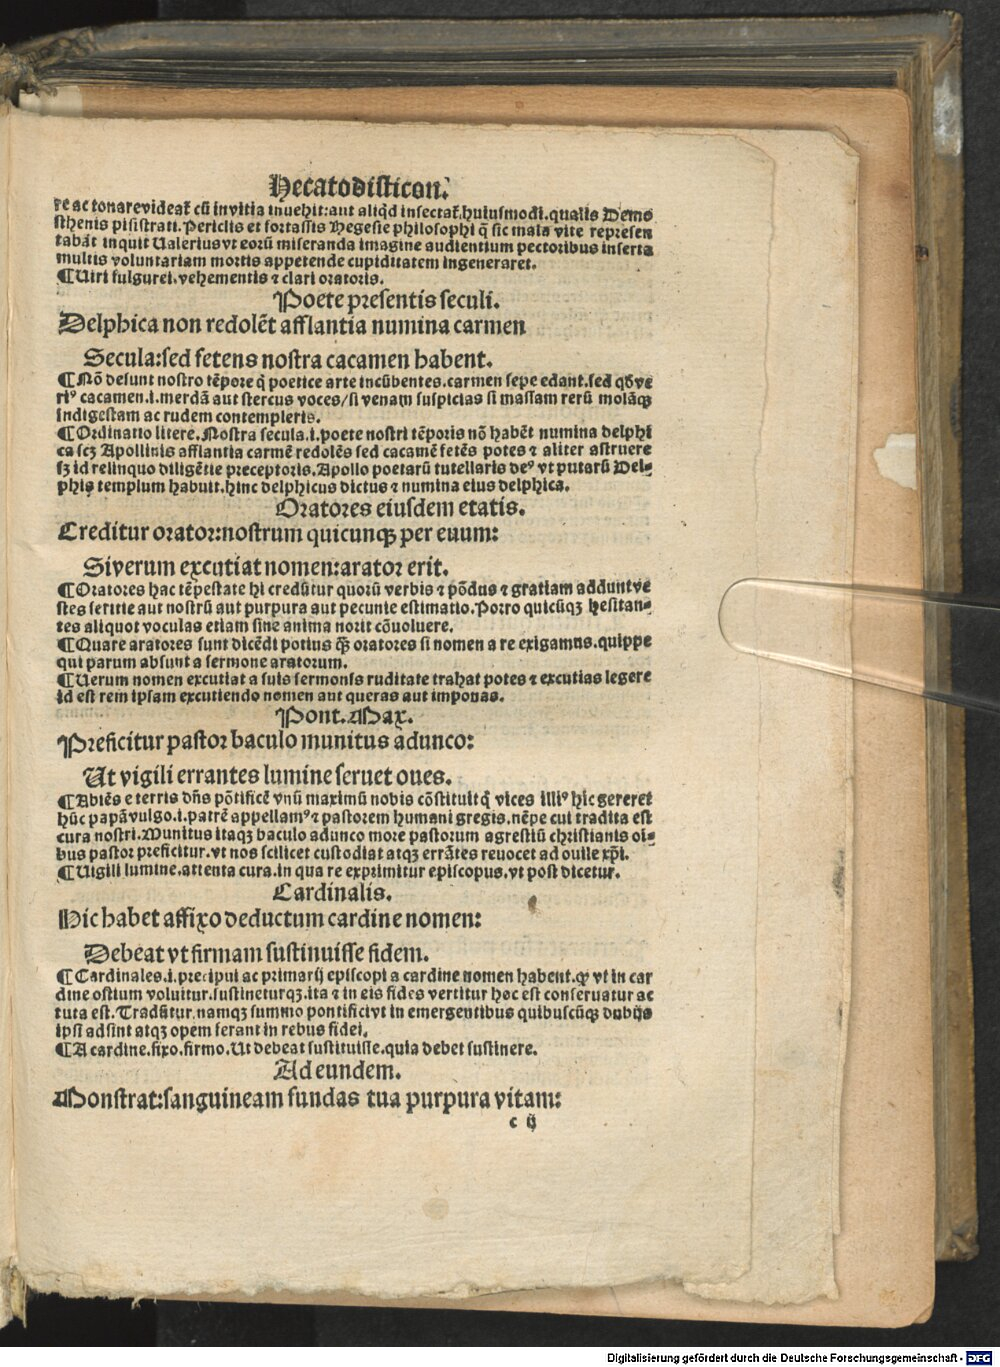 Hecatodisticon.
re ac tonare videat̄ cū in vitia inuehit: aut aliq̇d insectat̄. huiusmodi. qualis Demo
sthenis pisistrati. Periclis et fortassis Hegesie philosophi q̄ sic mala vite represen
tabāt inquit Ualerius vt eorū miseranda imagine audientium pectoribus inserta
multis voluntariam mortis appetende cupiditatem ingeneraret.
¶ Uiri fulgurei. vehementis ⁊ clari oratoris.
Poete presentis seculi.
Delphica non redolēt afflantia numina carmen
Secula: sed fetens nostra cacamen habent.
¶ Nō desunt nostro tēpore q̇ poetice arte incūbentes. carmen sepe edant. sed qđ ve
riꝰ cacamen .i. merdā aut stercus voces/ si venam suspicias si massam rerū molāqꝫ
indigestam ac rudem contempleris.
¶ Ordinatio litere. Nostra secula .i. poete nostri tēporis nō habēt numina delphi
ca scꝫ Apollinis afflantia carmē redolēs sed cacamē fetēs potes ⁊ aliter astruere
sꝫ id relinquo diligētie preceptoris. Apollo poetarū tutellaris deꝰ vt putarū Del⸗
phis templum habuit. hinc delphicus dictus ⁊ numina eius delphica.
Oratores eiusdem etatis.
Creditur orator: nostrum quicunqꝫ per euum:
Si verum excutiat nomen: arator erit.
¶ Oratores hac tēpestate hi credūtur quorū verbis ⁊ pōdus ⁊ gratiam addunt ve
stes seritie aut nostrū aut purpura aut pecunie estimatio. Porro quicūqꝫ hesitan⸗
tes aliquot voculas etiam sine anima norit cōuoluere.
¶ Quare aratores sunt dicēdi potius q̄ꝫ oratores si nomen a re exigamus. quippe
qui parum absunt a sermone aratorum.
¶ Uerum nomen excutiat a suis sermonis ruditate trahat potes ⁊ excutias legere
id est rem ipsam excutiendo nomen aut queras aut imponas.
Pont. Max.
Preficitur pastor baculo munitus adunco:
Ut vigili errantes lumine seruet oues.
¶ Abiēs e terris dn̄s pōtificē vnū maximū nobis cōstituit q̇ vices illiꝰ hic gereret
hūc papā vulgo .i. patrē appellamꝰ ⁊ pastorem humani gregis. nēpe cui tradita est
cura nostri. Munitus itaqꝫ baculo adunco more pastorum agrestiū christianis oi⸗
bus pastor preficitur. vt nos scilicet custodiat atqꝫ errātes reuocet ad ouile xp̄i.
¶ Uigili lumine. attenta cura. in qua re exprimitur episcopus. vt post dicetur.
Cardinalis.
Hic habet affixo deductum cardine nomen:
Debeat vt firmam sustinuisse fidem.
¶ Cardinales .i. precipui ac primarij episcopi a cardine nomen habent. ꝙ vt in car
dine ostium voluitur. sustineturqꝫ. ita ⁊ in eis fides vertitur hoc est conseruatur ac
tuta est. Tradūtur. namqꝫ summo pontifici vt in emergentibus quibuscūqꝫ dubijs
ipsi adsint atqꝫ opem ferant in rebus fidei.
¶ A cardine. fixo. firmo. Ut debeat sustituisse. quia debet sustinere.
Ad eundem.
Monstrat: sanguineam fundas tua purpura vitam:
c ij
Digitalisierung gefördert durch die Deutsche Forschungsgemeinschaft - DFG